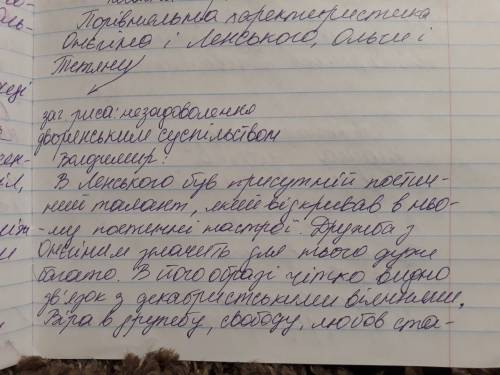 Порівняльна характеристика
Онєгіна і Ленського, Ольги і
Тетяни
заг. риса: незадоволення
дворянським суспільством
Володимир:
В Ленського був присутній поетич-
ний талант, який відкривав в ньо-
му поетичні настрої. Дружба з
Онєгіним значить для нього дуже
багато. В його образі чітко видно
зв'язок з декабристськими віяннями.
Віра в дружбу, свободу, любов ста-